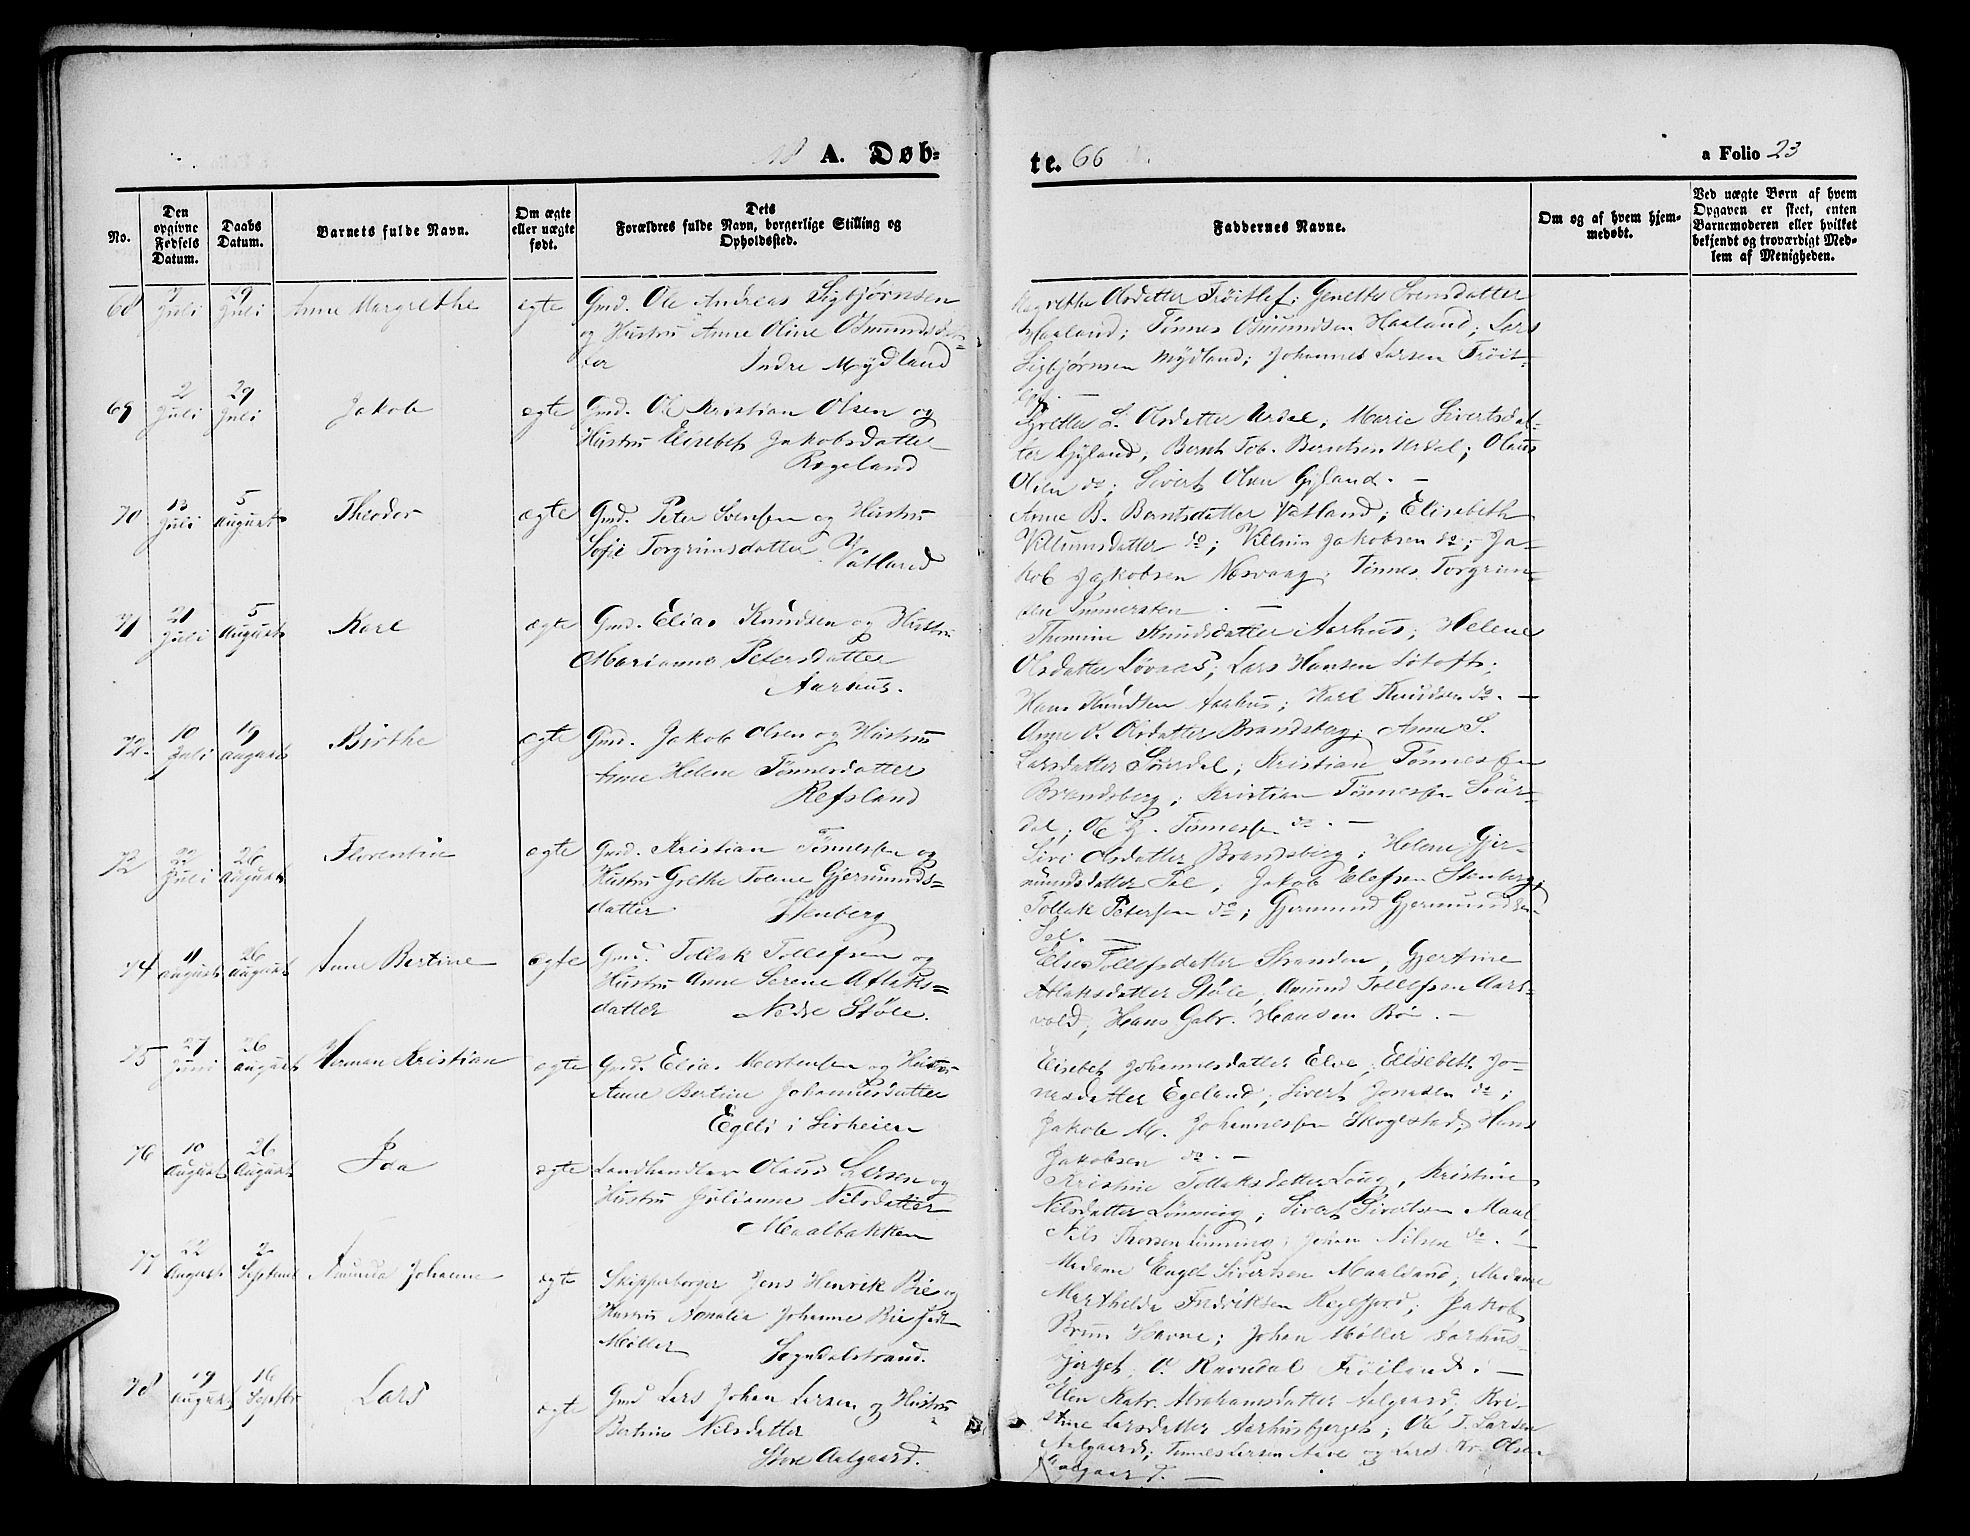 18 A. Døb-
te. 66
a Folio 23
No.
Den opgivne Fødsels Datum.
Daabs Datum.
Barnets fulde Navn.
Om ægte eller uægte født.
Dets
Forældres fulde Navn, borgerlige Stilling og
Opholdssted.
Faddernes Navne.
Om og af hvem hjem-
medøbt.
Ved uægte Børn af hvem
Opgaven er skeet, enten
Barnemoderen eller hvilket
bekjendt og troværdigt Med-
lem af Menigheden.
68 9 Juli 29 Juli Anne Margrethe ægte Gmd. Ole Andreas Sigbjørnsen
og Hustru Anne Oline Osmundsdat-
ter Indre Mydland
Magrethe Olsdatter Frøitlef; Genette Svensdatter
Haaland; Tønnes Osmundsen Haaland; Lars
Sigbjørnsen Mydland; Johannes Larsen Frøit-
lef. —
69 2 Juli 29 Juli Jakob ægte Gmd. Ole Kristian Olsen og
Hustru Elisebet Jakobsdatter
Rogeland
Grethe S. Olsdatter Urdal; Marie Sivertsdat-
ter Gyland, Bernt Tob. Berntsen Urdal; Olaus
Olsen do; Sivert Olsen Gyland. —
70 13 Juli 5 August Theodor ægte Gmd. Peter Svensen og Hustru
Sofie Torgrimsdatter
Vatland
Anne B. Berntsdatter Vatland; Elisebeth
Villumsdatter do; Villum Jakobsen do; Ja-
kob Jakobsen Nesvaag; Tønnes Torgrim-
sen
71 21 Juli 5 August Karl ægte Gmd. Elias Knudsen og Hustru
Marianne Petersdatter
Aarhus.
Thomine Knudsdatter Aarhus; Helene
Olsdatter Løvaas; Lars Hansen Løtoft;
Hans Knudsen Aarhus; Karl Knudsen do. —
72 10 Juli 19 August Birthe ægte Gmd. Jakob Olsen og Hustru
Anne Helene Tønnesdatter
Refsland
Anne K. Olsdatter Brandsberg; Anne S.
Larsdatter Suerdal; Kristian Tønnessen
Brandsberg; Kristian Tønnessen Suer-
dal; Ole Tønnessen do. —
72 22 Juli 26 August Florentine ægte Gmd. Kristian Tønnessen og
Hustru Grethe Tolene Gjermunds-
datter Stenberg
Siri Olsdatter Brandsberg; Helene Gjer-
mundsdatter Sel; Jakob Elefsen Stenberg;
Tollak Petersen do; Gjermund Gjermundsen
Sel. —
74 11 August 26 August Anne Bertine ægte Gmd. Tollak Tollefsen og
Hustru Anne Serene Aslaks-
datter Nedre Støle.
Else Tollefsdatter Stranden, Gjertine
Aslaksdatter Støle, Amund Tollefsen Aars-
vold; Hans Gabr. Hansen Bø. —
75 27 Juni 26 August Herman Kristian ægte Gmd. Elias Mortensen og Hustru
Anne Bertine Johannesdatter
Egeli i Sirheien
Elisebet Johannesdatter Elve; Elisebeth Jo-
nasdatter Egeland; Sivert Jonasen do;
Jakob M. Johannessen Skogestad; Hans
Jakobsen do. —
76 10 August 26 August Ida ægte Landhandler Olaus Larsen og
Hustru Julianne Nilsdatter
Maalbakken
Kristine Tollaksdatter Loug, Kristine
Nilsdatter Lønning; Sivert Sivertsen Maal.
Nils Thorsen Lønning; Johan Nilsen do. —
77 22 August 2 Septemb Amanda Johanne ægte Skipperborger Jens Henrik Bie og
Hustru Amalie Johanne Bie født
Møller Sogndalstrand.
Madame Engel Sivertsen Maaldand; Madame
Marthelde Fredriksen Regefjord; Jakob
Bruun Havne; Johan Møller Aarhus-
bjerget; O. Ravndal Frøiland. —
78 19 August 16 Septbr Lars ægte Gmd Lars Johan Larsen og Hustru
Bertine Nilsdatter
Store Aalgaard.
Elen Katr. Abrahamsdatter Aalgaard; Kri-
stine Larsdatter Aarhusbjerget; Ole T. Larsen
Aalgaard; Tønnes Larsen Aave og Lars Kr. Olsen
Aalgaard. —